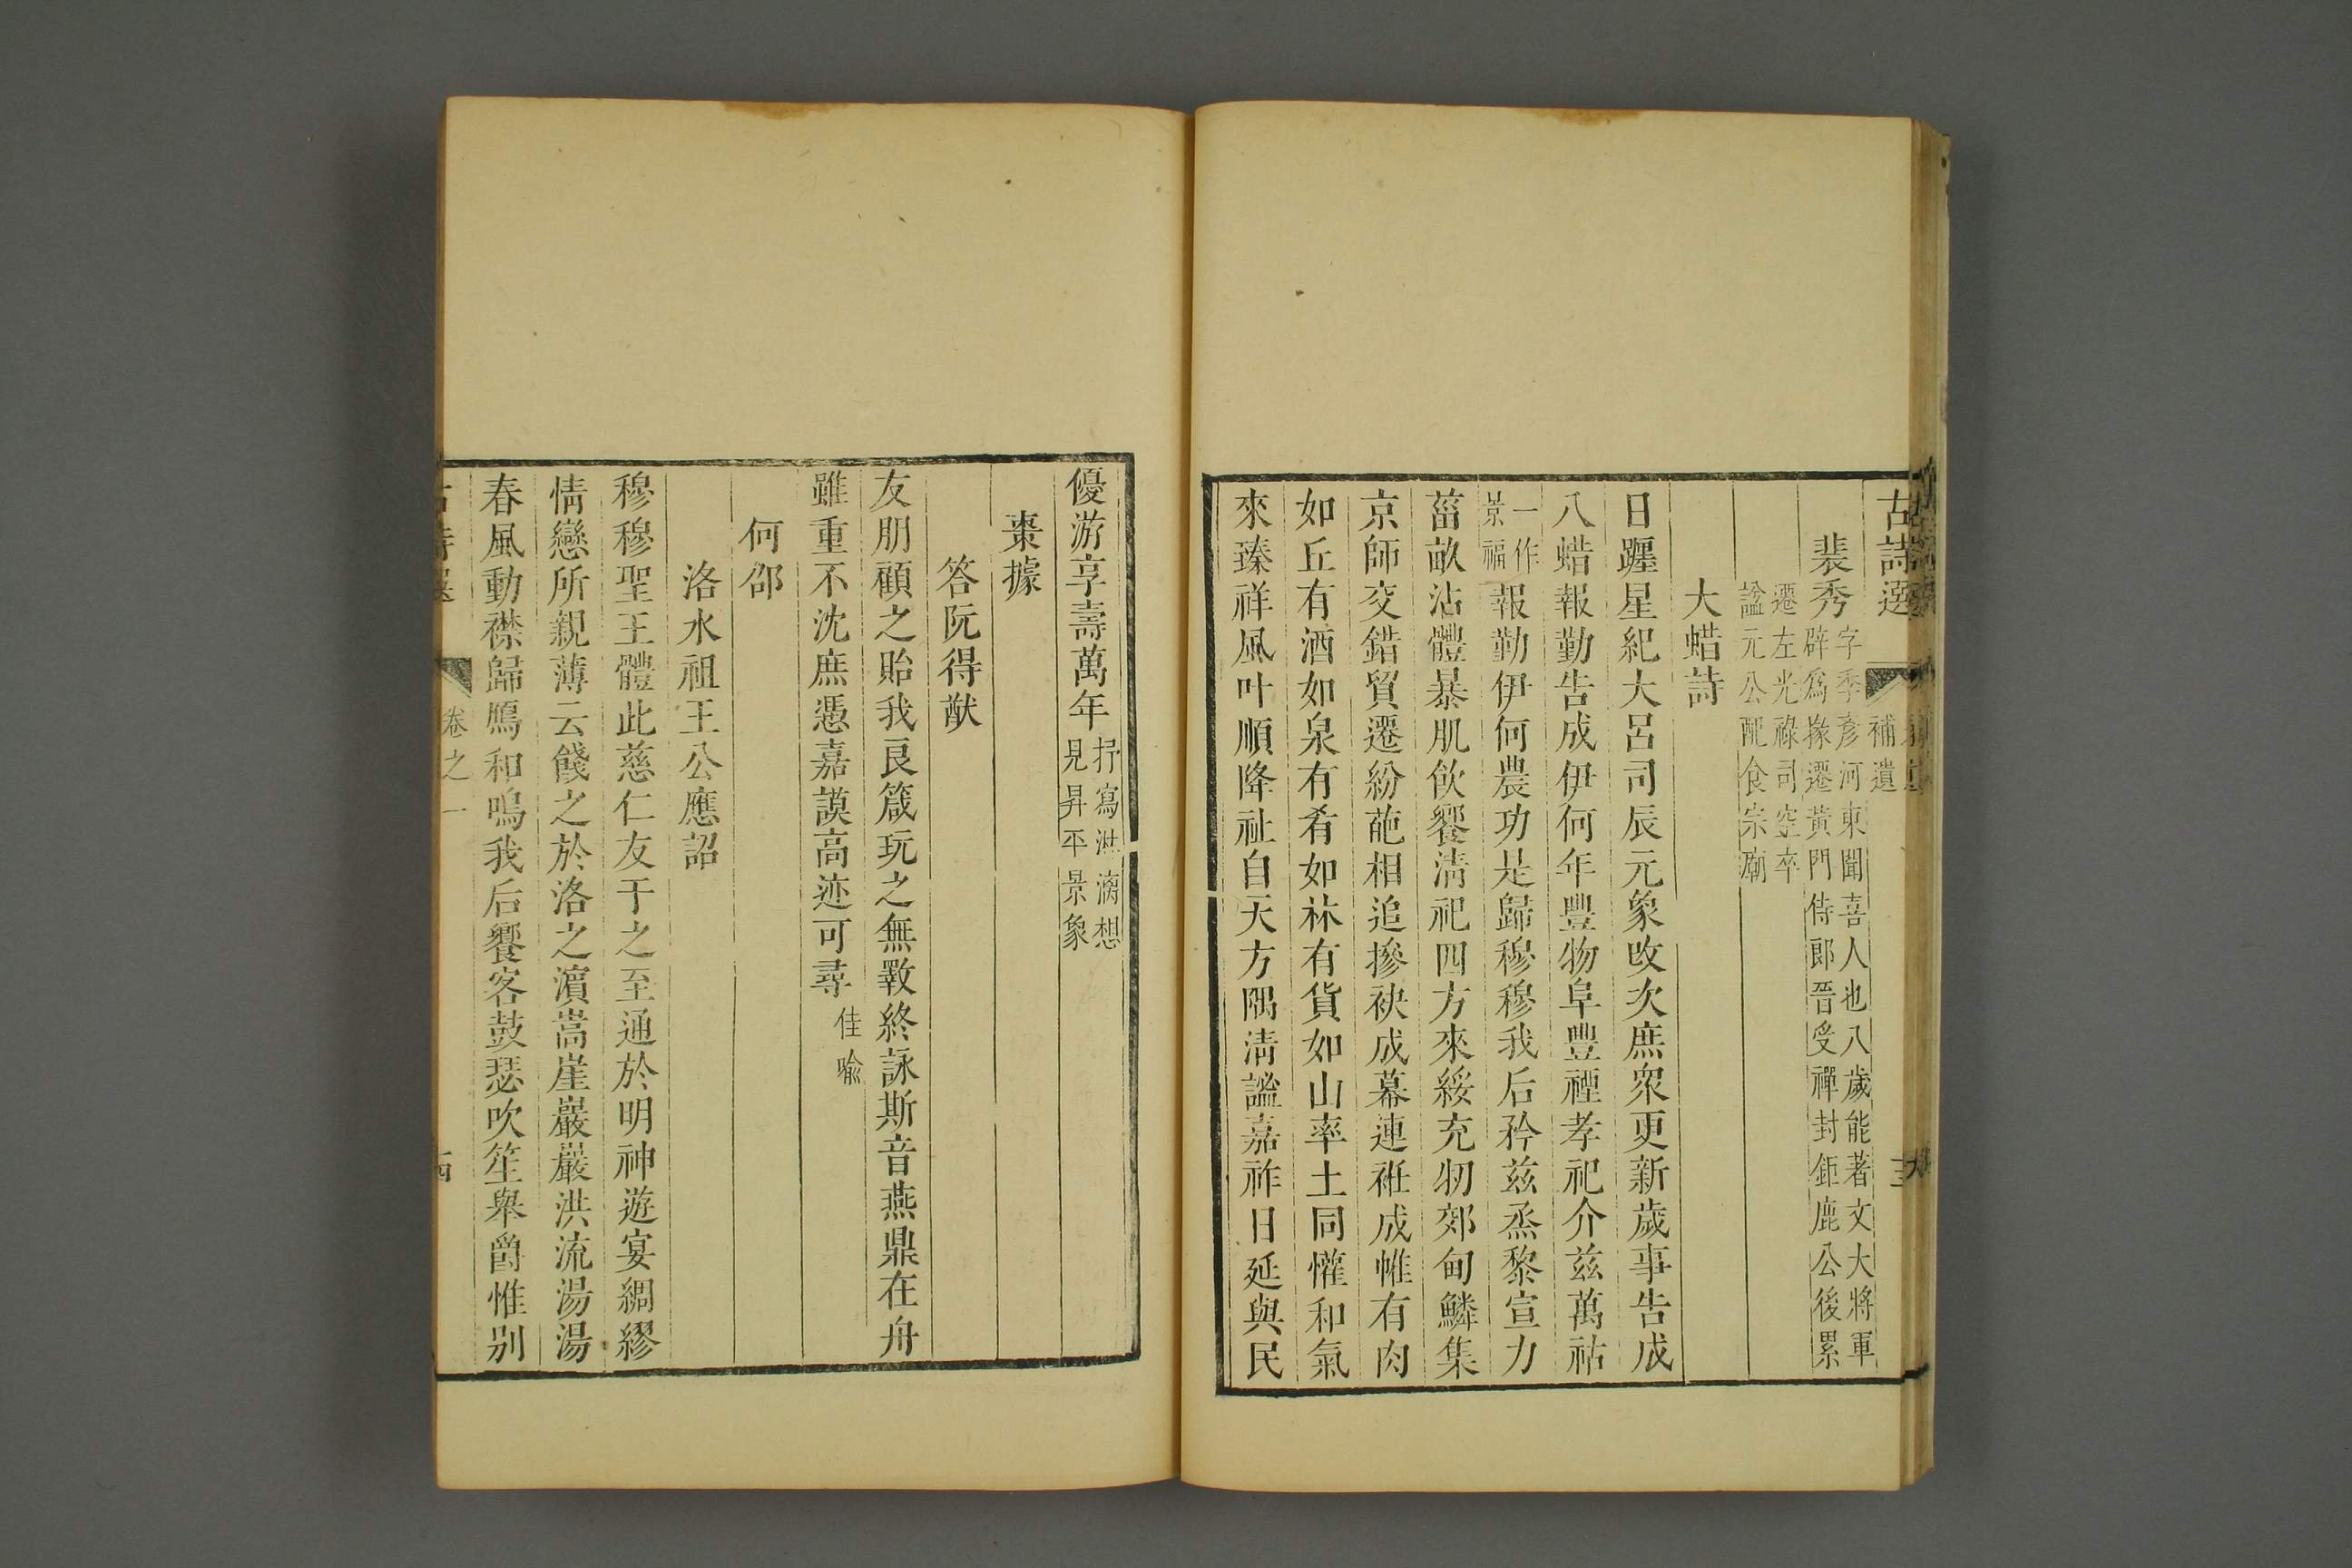 古詩選
補遺
裴秀 字季彥河東聞喜人也八歲能著文大將軍
辟爲掾遷黃門侍郎晉受禪封鉅鹿公後累
遷左光祿司空卒
諡元公配食宗廟
大蜡詩
日躔星紀大呂司辰元象改次庶眾更新歲事告成
八蜡報勤告成伊何年豐物阜豐禋孝祀介茲萬祜
一作
景福
報勤伊何農功是歸穆穆我后矜茲烝黎宣力
菑畝沾體暴肌飲饗清祀四方來綏充牣郊甸鱗集
京師交錯貿遷紛葩相追摻袂成幕連袵成帷有肉
如丘有酒如泉有肴如林有貨如山率土同懽和氣
來臻祥風叶順降祉自天方隅清謐嘉祚日延與民
優游享壽萬年
抒寫淋漓想
見昇平景象
棗據
答阮得猷
友朋顧之貽我良箴玩之無斁終詠斯音燕鼎在舟
雖重不沈庶憑嘉謨高迹可尋 佳喻
何邵
洛水祖王公應詔
穆穆聖王體此慈仁友于之至通於明神遊宴綢繆
情戀所親薄云餞之於洛之濵嵩崖巖巖洪流湯湯
春風動襟歸鴈和鳴我后饗客鼓瑟吹笙舉爵惟别
卷之一